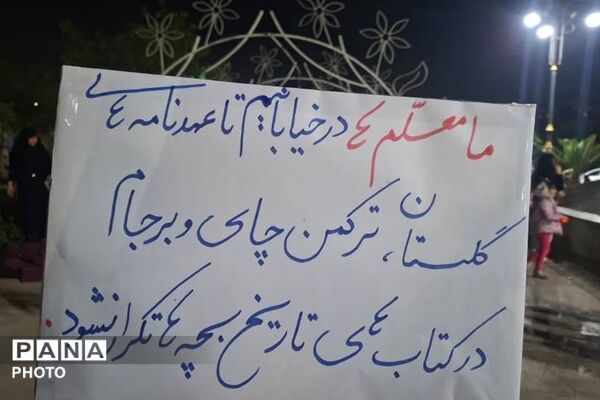 ما معلّم ها در خیابانیم تا عهدنامه هایِ
گلستان، ترکمن چای و برجام
در کتاب های تاریخ بچه ها تکرار نشود.
PANA
PHOTO